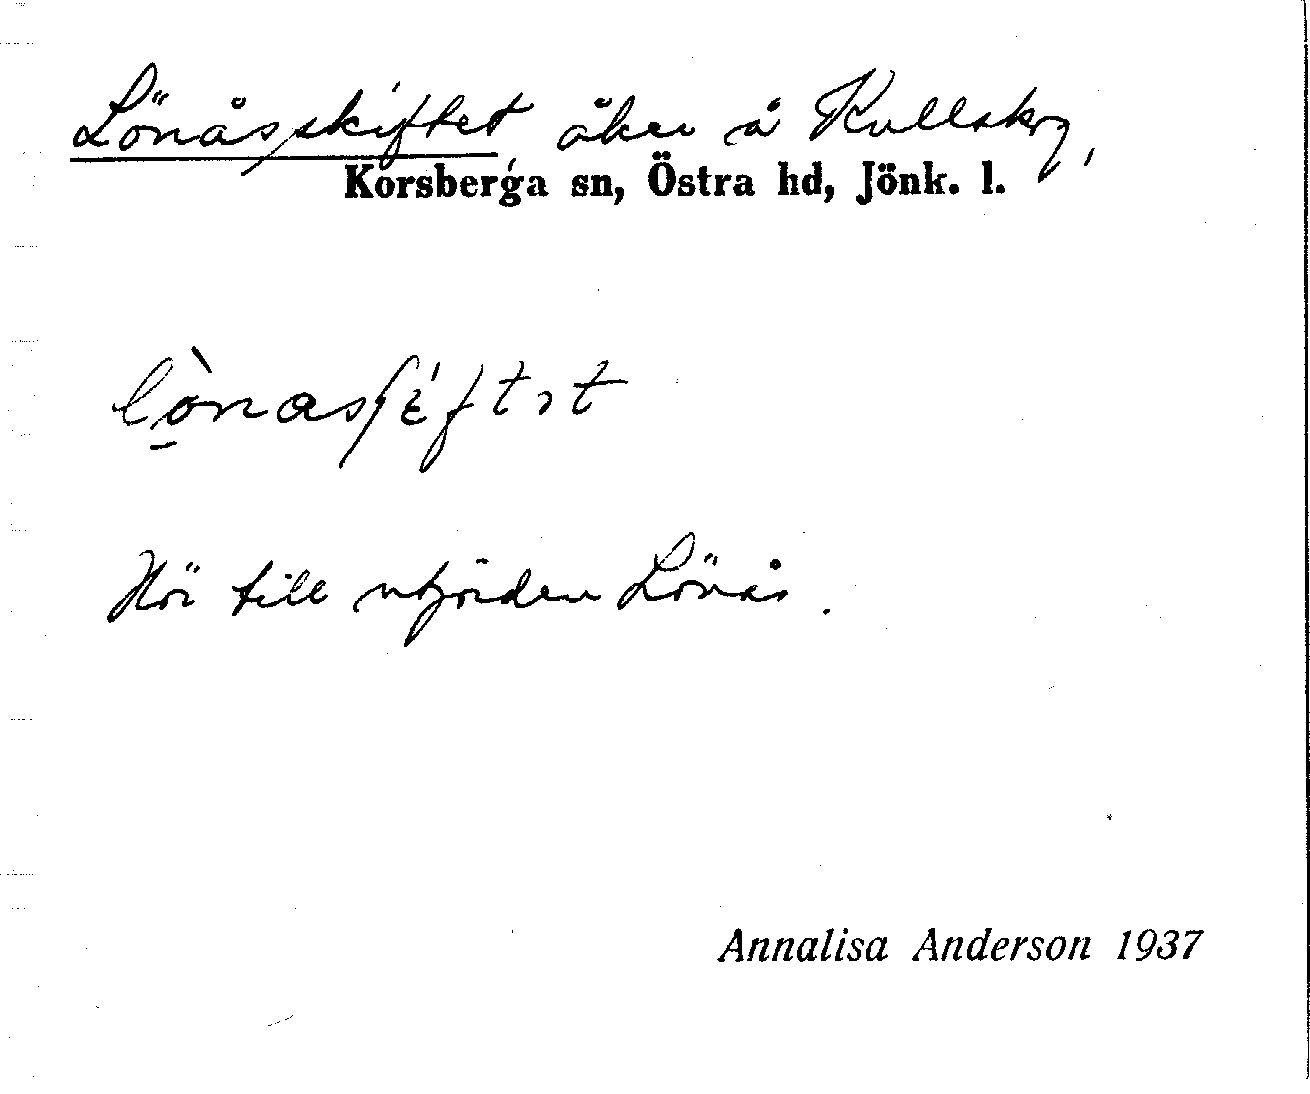 Lönåsskiftet, åker å Kullskog,
Korsberga sn, Östra hd, Jönk. l.
Hör till utjorden Lönås.
Annalisa Anderson 1937